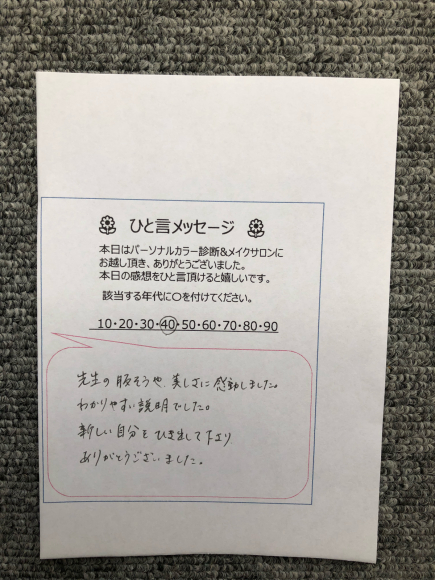 ひと言メッセージ
本日はパーソナルカラー診断&メイクサロンに
お越し頂き、ありがとうございました。
本日の感想をひと言頂けると嬉しいです。
該当する年代に〇を付けてください。
10・20・30・40・50・60・70・80・90
先生の服そうや、美しさに感動しました。
わかりやすい説明でした。
新しい自分をひき出して下さり
ありがとうございました。